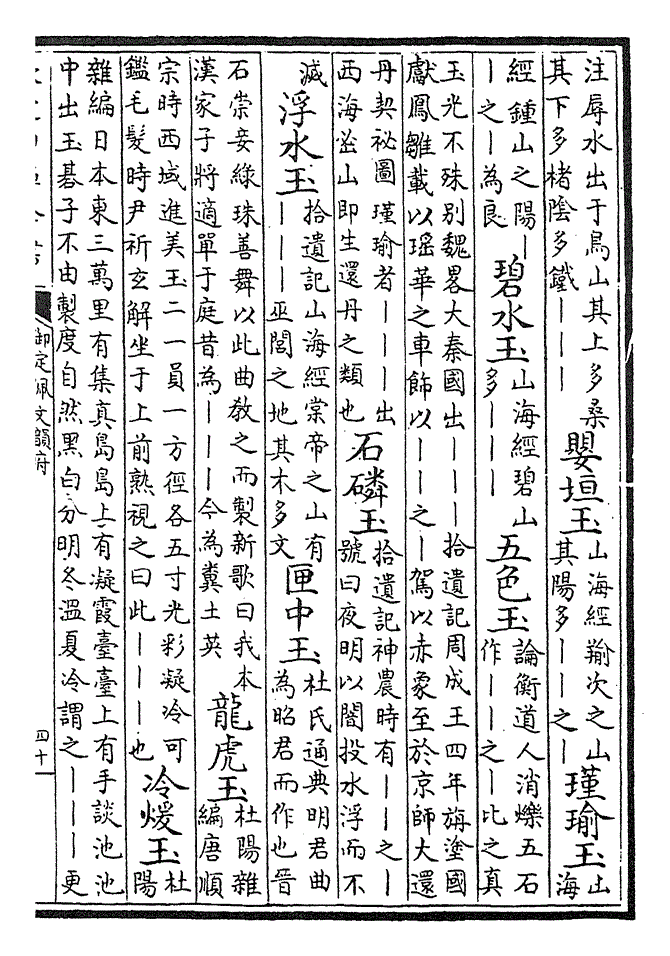 注辱水出于鳥山其上多桑
其下多楮陰多鐵丨丨丨
嬰垣玉
山海經羭次之山
其陽多丨丨之丨
瑾瑜玉
山
海
經鍾山之陽丨
丨之丨為良
碧水玉
山海經碧山
多丨丨丨
五色玉
論衡道人消爍五石
作丨丨之丨比之真
玉光不殊別魏畧大秦國出丨丨丨拾遺記周成王四年旃塗國
獻鳳雛載以瑶華之車飾以丨丨之丨駕以赤象至於京師大還
丹契祕圖瑾瑜者丨丨丨出
西海峚山即生還丹之類也
石磷玉
拾遺記神農時有丨丨之丨
號曰夜明以闇投水浮而不
滅
浮水玉
拾遺記山海經棠帝之山有
丨丨丨巫閭之地其木多文
匣中玉
杜氏通典明君曲
為昭君而作也晉
石崇妾綠珠善舞以此曲教之而製新歌曰我本
漢家子將適單于庭昔為丨丨丨今為糞土英
龍虎玉
杜陽雜
編唐順
宗時西域進美玉二一員一方徑各五寸光彩凝冷可
鑑毛髮時尹祈玄解坐于上前熟視之曰此丨丨丨也
冷煖玉
杜
陽
雜編日本東三萬里有集真島島上有凝霞臺臺上有手談池池
中出玉碁子不由製度自然黑白分明冬溫夏冷謂之丨丨丨更
御定佩文韻府
四十